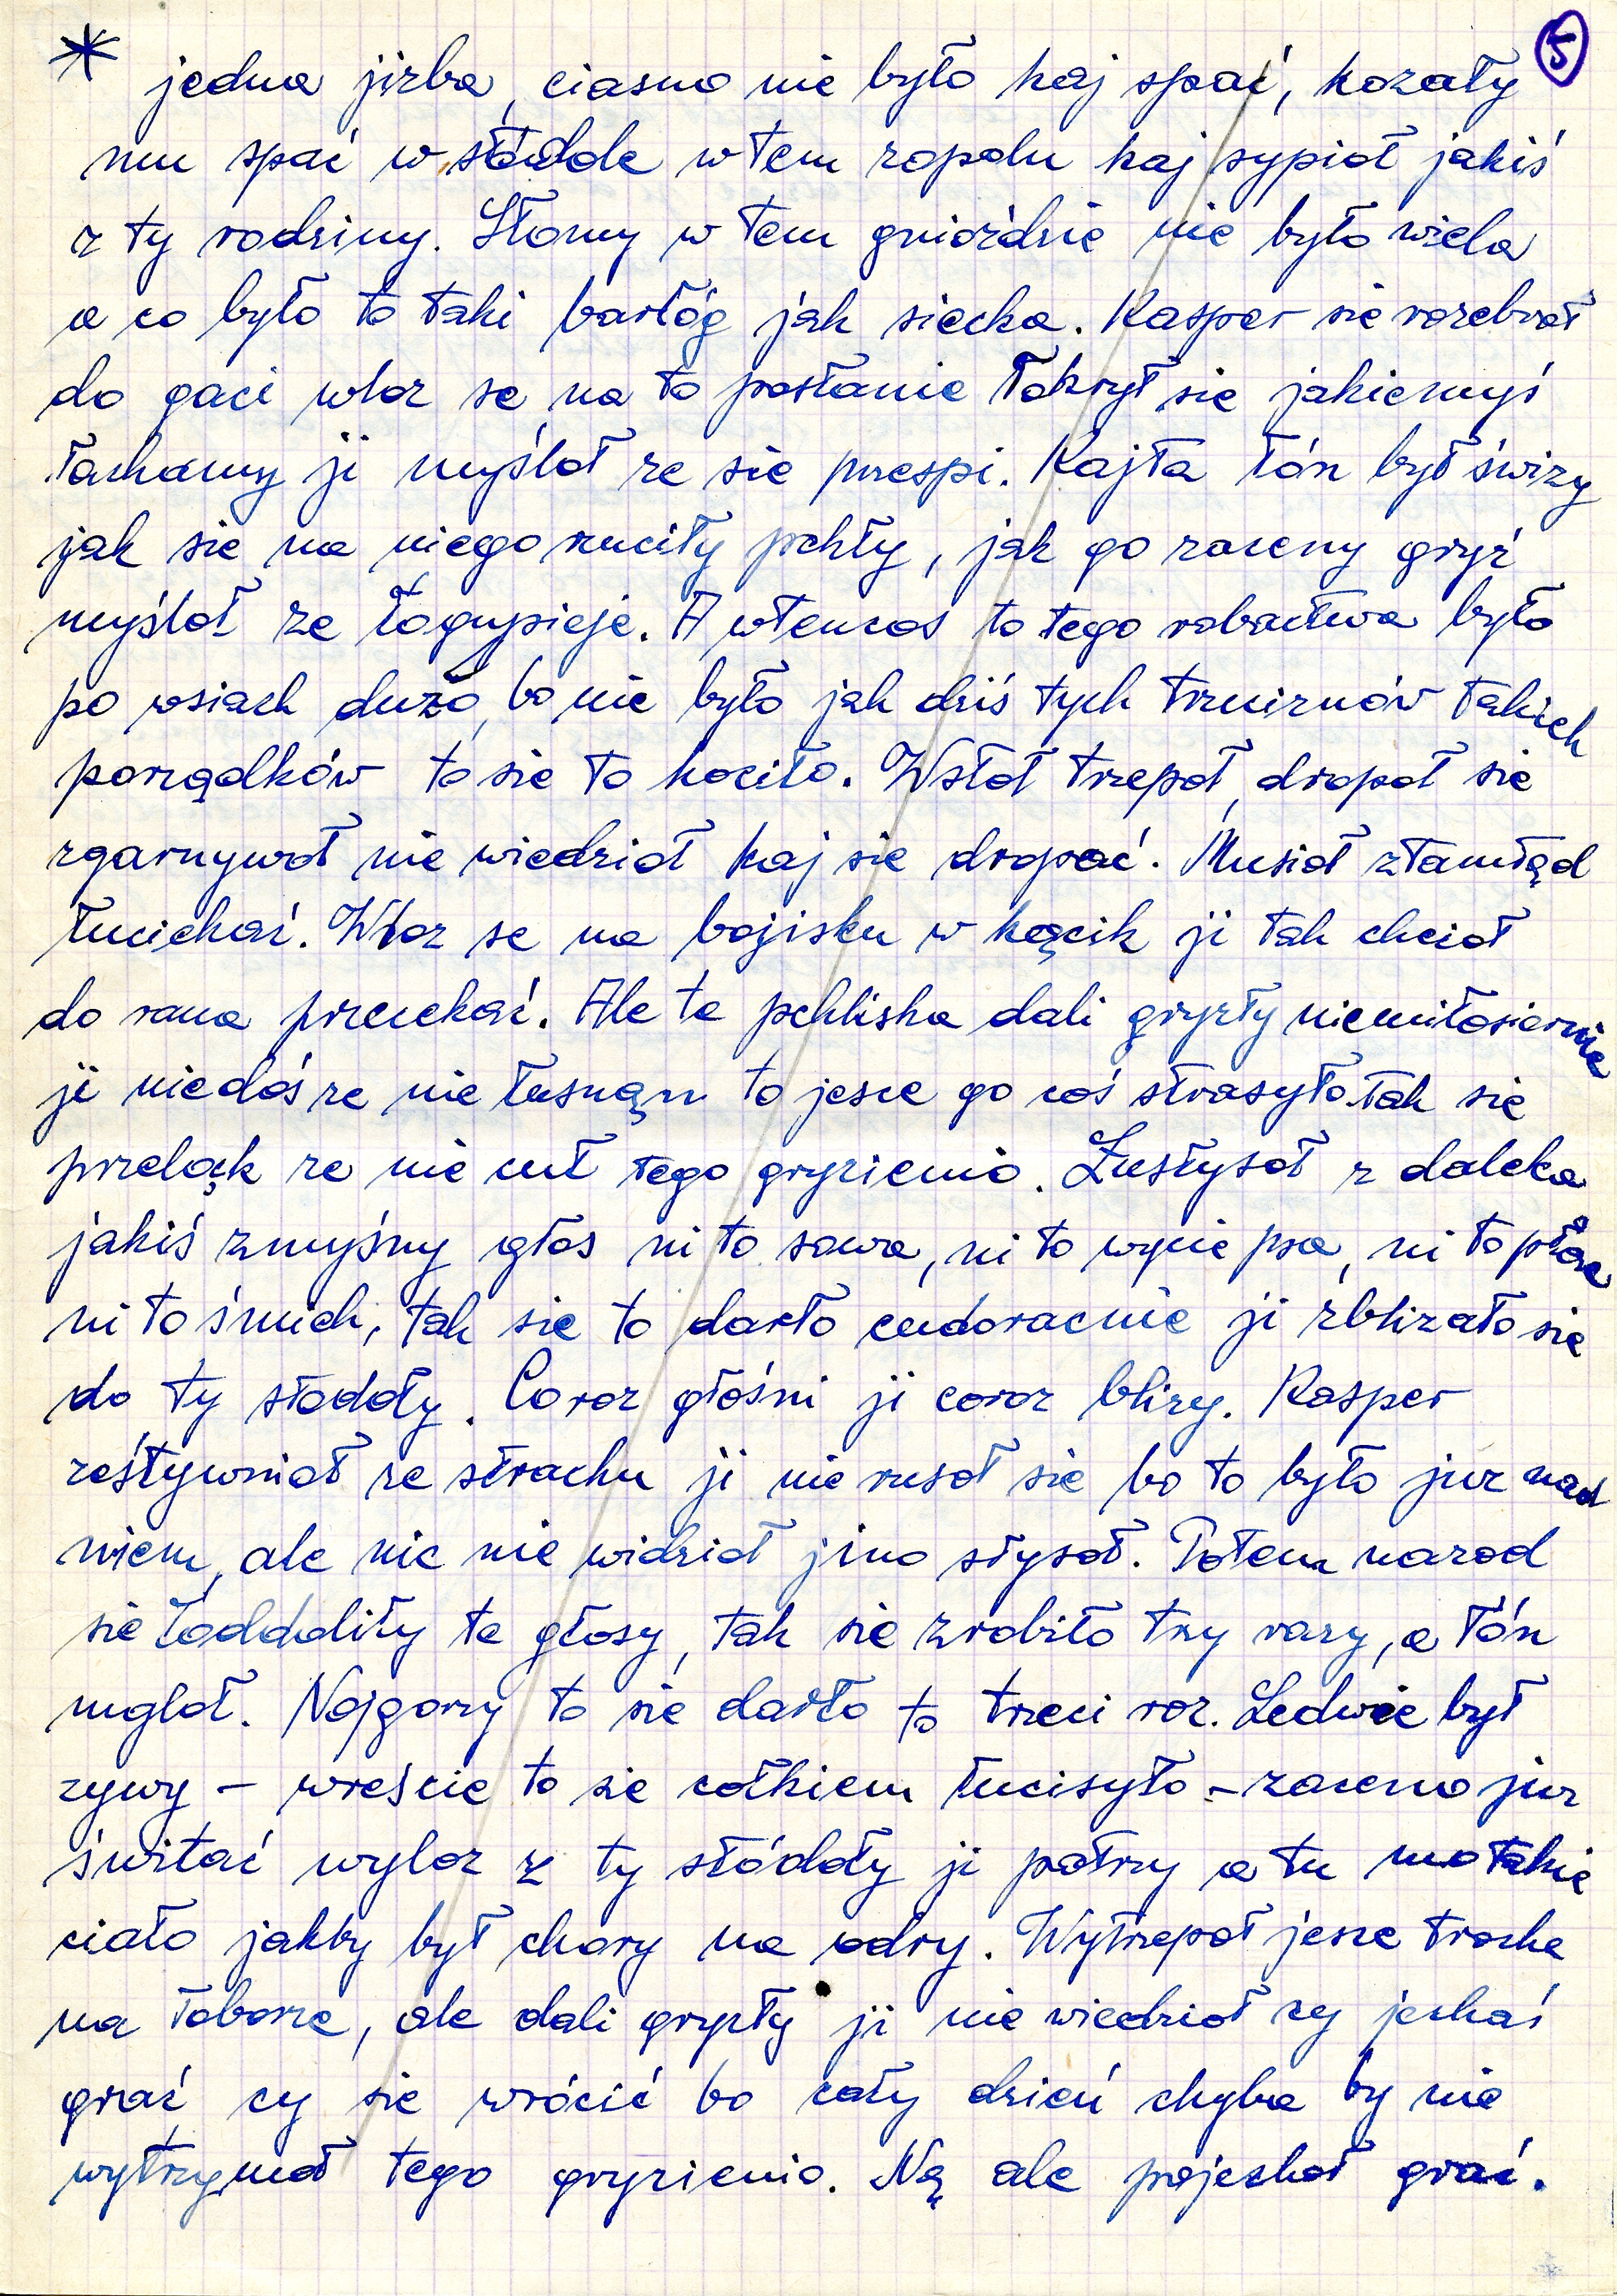 * jedna jizba, ciasno nie było kaj spać, kozały 5
mu spać w stodole w tem zopolu kaj sypioł jakiś
z ty rodziny. Słomy w tem gnioździe nie było wiela
a co było to taki barłóg jak siecka. Kasper sie rozebroł
do gaci wloz se na to posłanie łokrył sie jakiemyś
łachamy ji myśloł ze sie prześpi. Kajta łón był świzy
jak sie na niego rzuciły pchły, jak go zaceny gryź
myśloł ze łogupieje. A wtencos to tego robactwa było
po wsiach dużo, bo nie było jak dziś tych truciznów takich
porządków to sie to kociło. Wstoł trzepoł, dropoł sie
zgarnywoł nie wiedzioł kaj sie dropać. Musioł ztamtąd
łuciekać. Wloz se na bojisku w kącik ji tak chcioł
do rana przeckać. Ale te pchliska dali gryzły niemiłosiernie
ji niedoś ze nie łusnąn to jesce go coś strasyło tak sie
przeląk ze nie cuł tego gryzienio. Zusłysoł z daleka
jakiś zmyśny głos ni to sowa, ni to wycie psa, ni to płac
ni to śmich, tak sie to darło cudoracnie ji zblizało sie
do ty stodoły. Coroz głośni ji coroz blizy. Kasper
zeštywnioł ze strachu ji nie rusoł sie bo to było juz nad
niem, ale nic nie widzioł jino słysoł. Potem nazod
sie łoddoliły te głosy, tak sie zrobiło trzy razy, a łón
mgloł. Nojgorzy to sie darło to trzeci roz. Ledwie był
zywy – wreście to sie całkiem łucisyło – zaceno juz
świtać wyloz z ty stódoły ji patrzy a tu mo takie
ciało jakby był chory na odry. Wytrzepoł jesce troche
na łoborze, ale dali gryzły ji nie wiedzioł cy jechać
grać cy sie wrócić bo cały dzień chyba by nie
wytrzymoł tego gryzienio. Ną ale pojechoł grać.